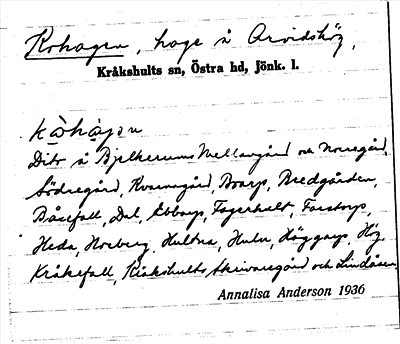 Kohagen, hage å Arvidshög,
Kråkshults sn, Östra hd, Jönk. l.
kòhàgan
Dito å Bjelkerums Mellangård och Norregård,
Södregård, Kvarnegård, Boarp, Bredgården,
Båsefall, Dal, Ebbarp, Fagerhult, Farstorp,
Heda, Norberg, Hultna, Hulu, Häggarp, Hög
Kråkefall, Kråkshults Skrivaregård och Lindåsen.
Annalisa Anderson 1936